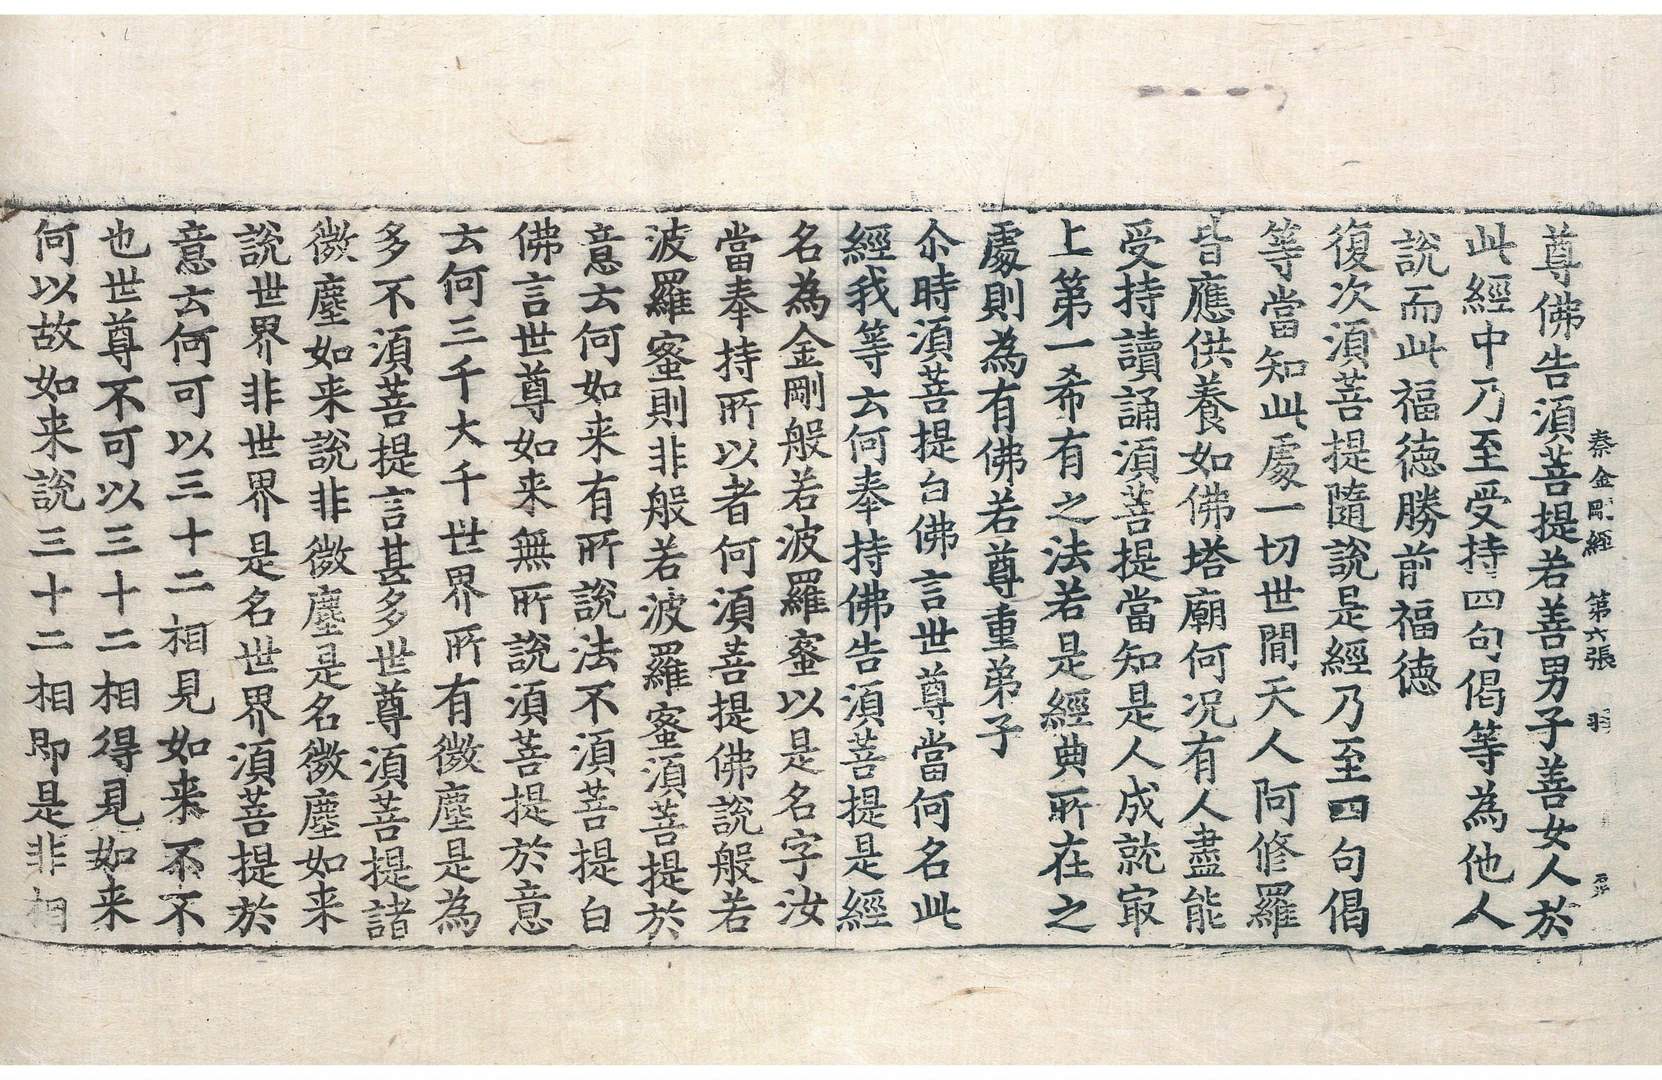 秦金剛經　第六張　羽
尊佛告須菩提若善男子善女人於
此經中乃至受持四句偈等為他人
說而此福德勝前福德
復次須菩提隨說是經乃至四句偈
等當知此處一切世間天人阿修羅
皆應供養如佛塔廟何况有人盡能
受持讀誦須菩提當知是人成就㝡
上第一希有之法若是經典所在之
處則為有佛若尊重弟子
尒時須菩提白佛言世尊當何名此
經我等云何奉持佛告須菩提是經
名為金剛般若波羅蜜以是名字汝
當奉持所以者何須菩提佛說般若
波羅蜜則非般若波羅蜜須菩提於
意云何如来有所說法不須菩提白
佛言世尊如来無所說須菩提於意
云何三千大千世界所有微塵是為
多不須菩提言甚多世尊須菩提諸
微塵如来說非微塵是名微塵如来
說世界非世界是名世界須菩提於
意云何可以三十二相見如来不不
也世尊不可以三十二相得見如来
何以故如来說三十二相即是非相